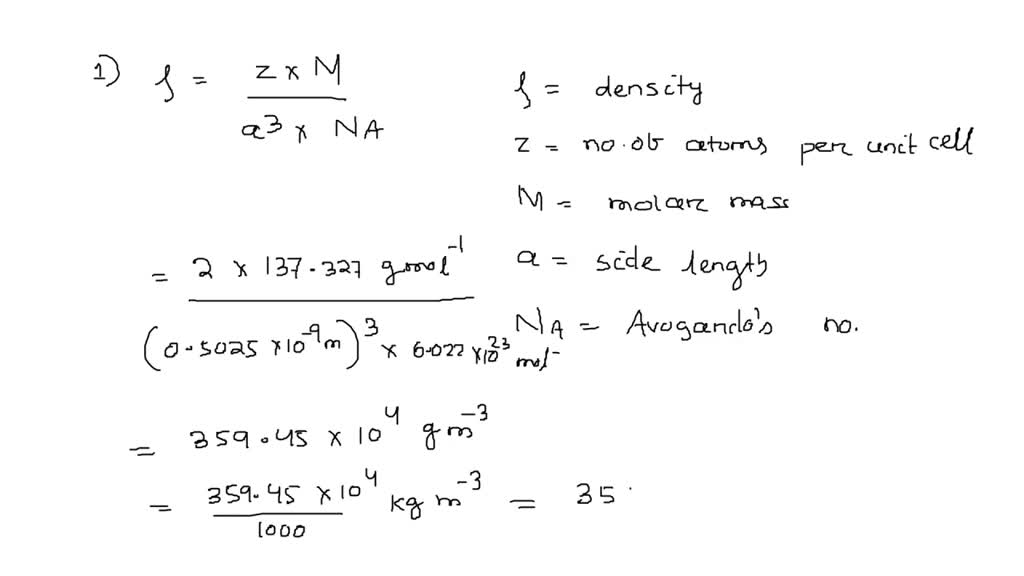 1) ρ = z × M / a³ × NA
ρ = density
z = no. of atoms per unit cell
M = molar mass
a = side length
NA = Avogando's no.
= 2 × 137.327 gmol⁻¹ / (0.5025 × 10⁻⁹ m)³ × 6.022 × 10²³ mol⁻
= 359.45 × 10⁴ g m⁻³
= 359.45 × 10⁴ / 1000 kg m⁻³ = 35.